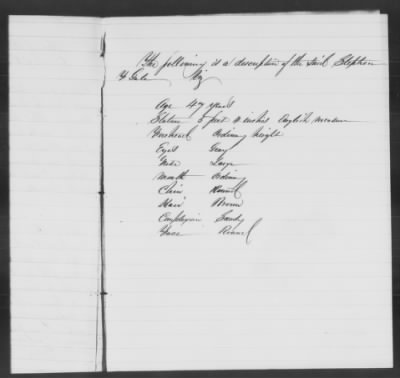 The following is a description of the said Stephen
H Gale Viz
Age 47 years
Stature 5 feet 11 inches English measure
Forehead Ordinary height
Eyes Gray
Nose Large
Mouth Ordinary
Chin Round
Hair Brown
Complexion Sandy
Face Round